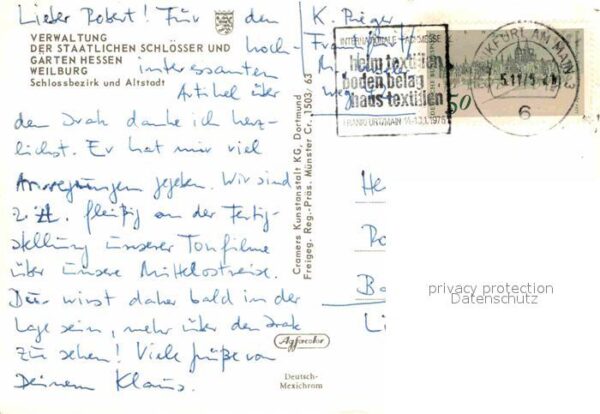 Lieber Robert! Für den
VERWALTUNG
DER STAATLICHEN SCHLÖSSER UND
GARTEN HESSEN
WEILBURG
Schlossbezirk und Altstadt
hoch-
interessanten
Artikel über
den Irak danke ich herz-
lichst. Er hat mir viel
Anregungen gegeben. Wir sind
z. Zt. fleißig an der Fertig-
stellung unserer Tonfilme
über unsere Mittelostreise.
Du wirst daher bald in der
Lage sein, mehr über den Irak
zu sehen! Viele Grüße von
Deinem Klaus.
Cramers Kunstanstalt KG, Dortmund
Freigeg. Reg.-Präs. Münster Cr. 1503/63
Agfacolor
Deutsch-
Mexichrom
K.
INTERNATIONALE FACHMESSE
heim textilien
boden belag
haus textilien
FRANKFURT/MAIN 14.-18.1.1976
50
FRANKFURT AM MAIN 3
6
He
Ro
Ba
privacy protection
Datenschutz